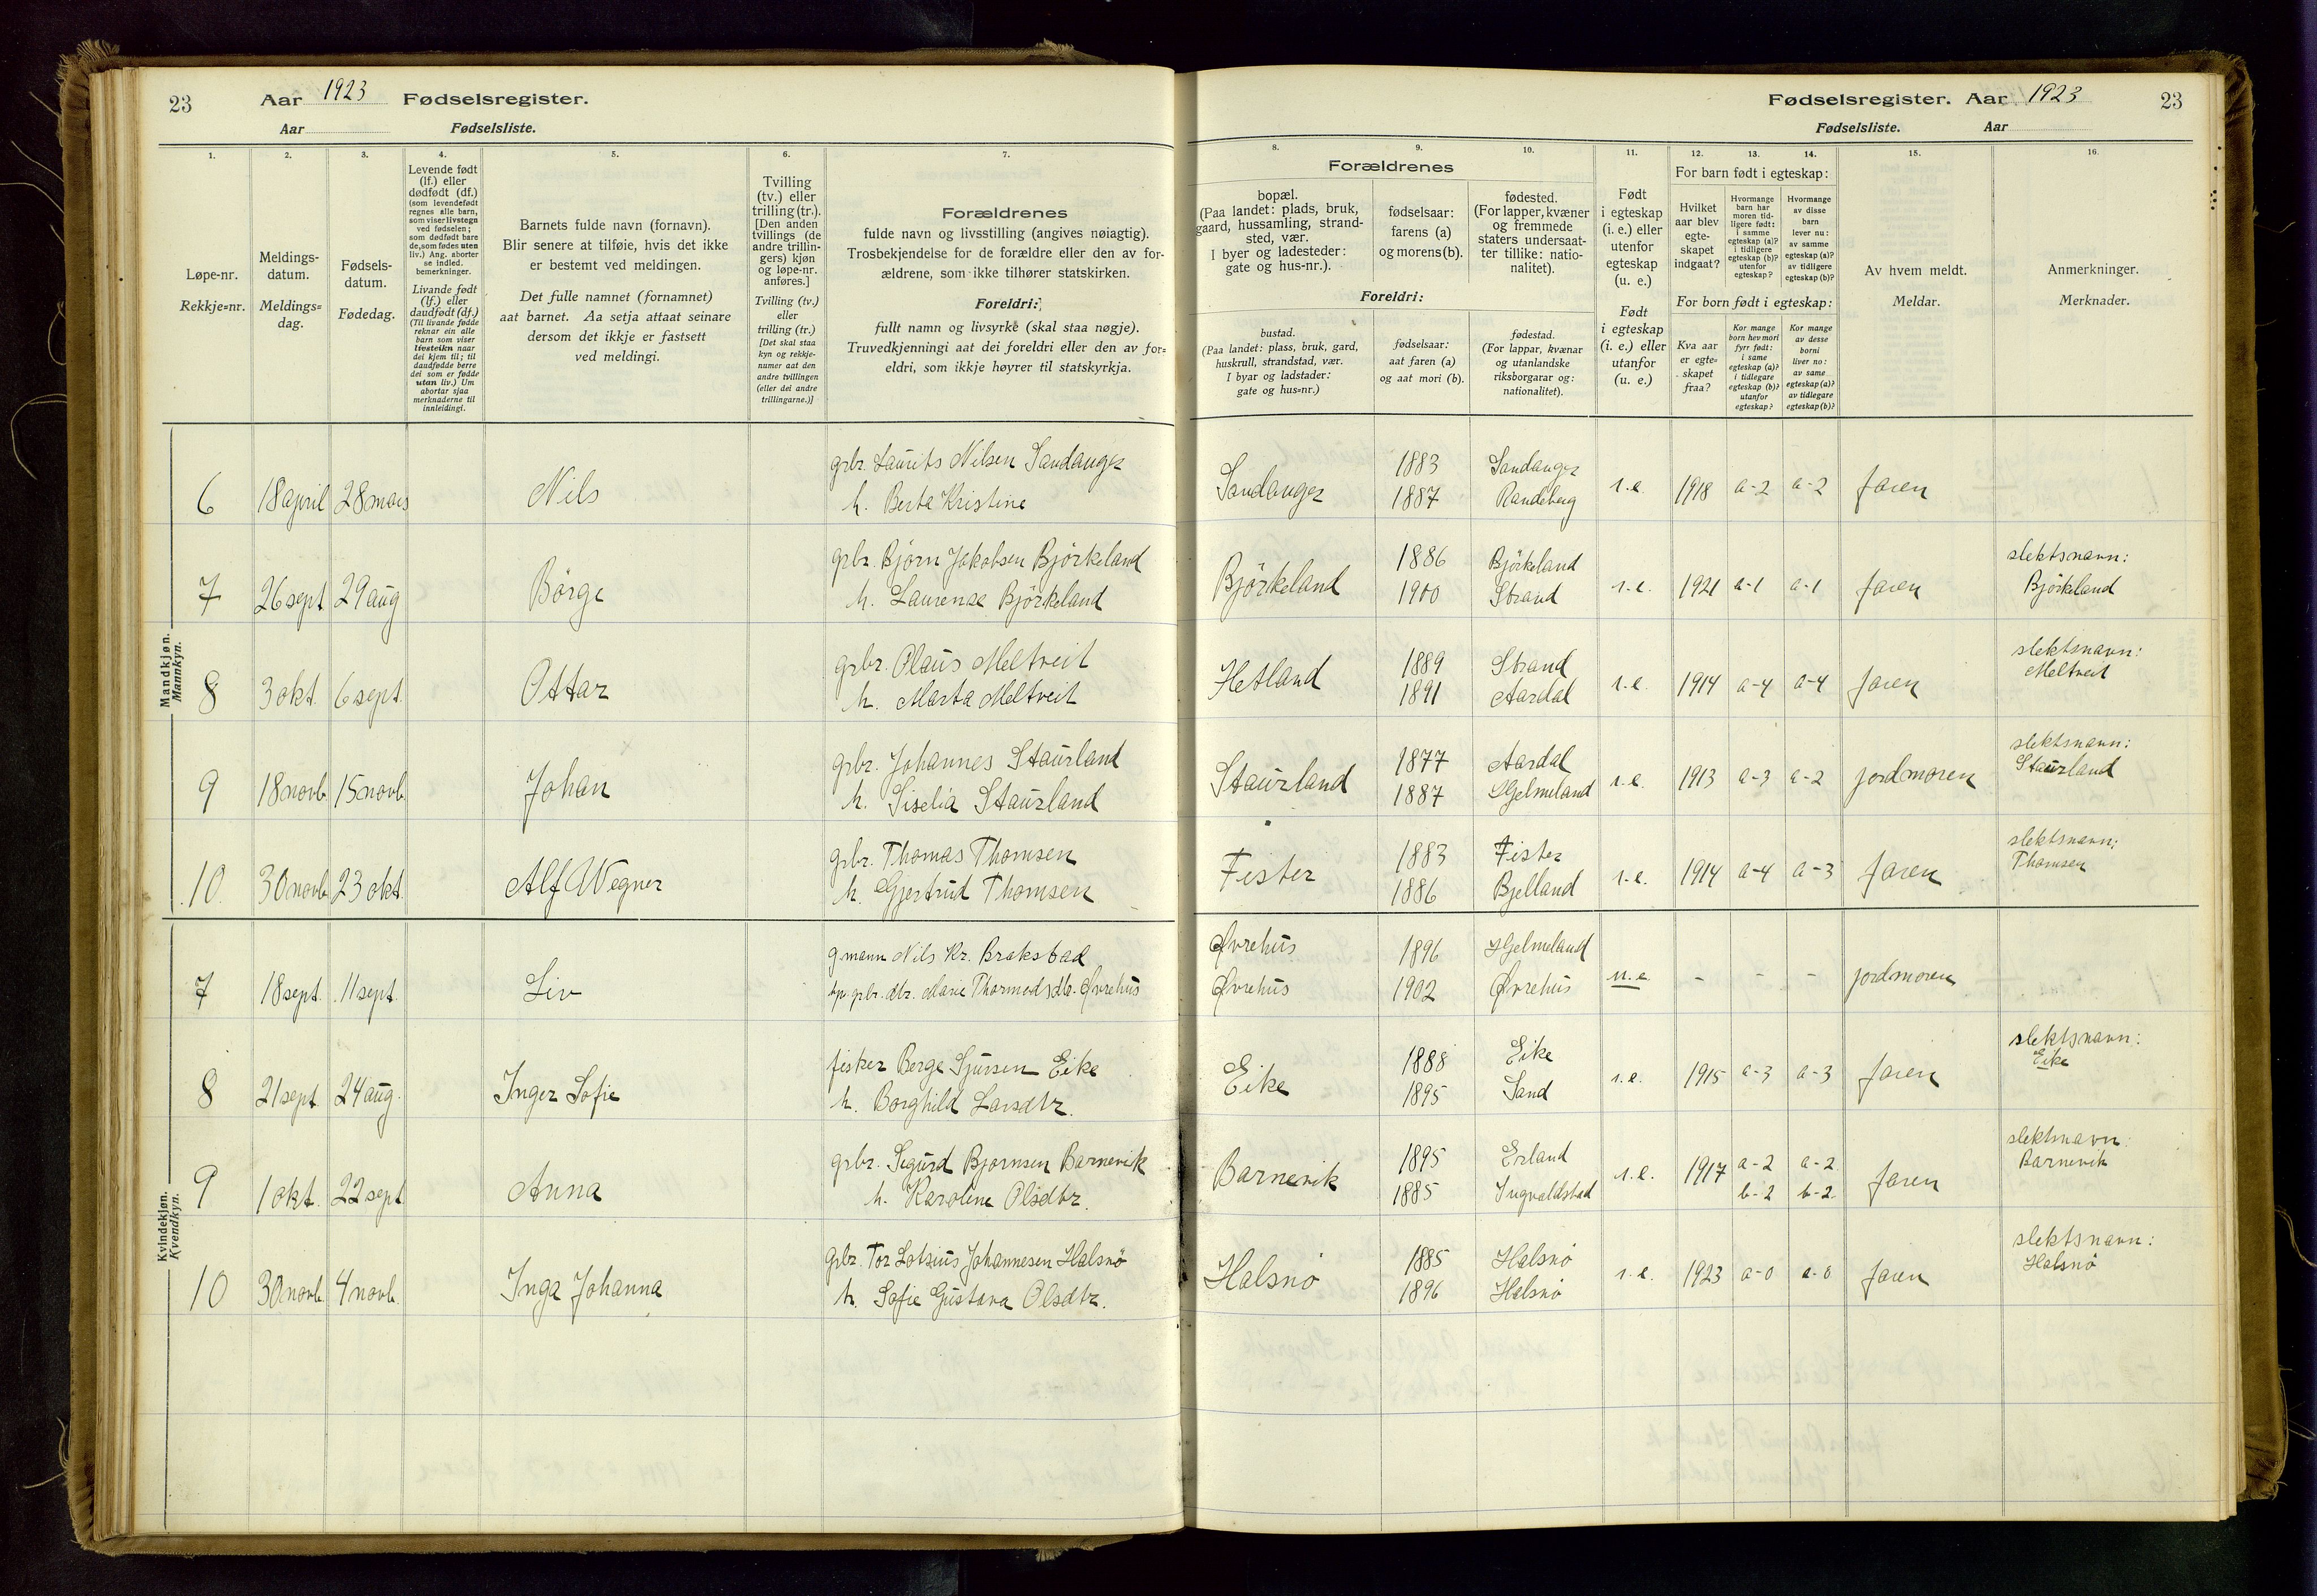 23 Aar 1923 Fødselsregister.
Aar Fødselsliste.
Fødselsregister. Aar 1923 23
Fødselsliste. Aar
1. 2. 3. 4. 5. 6. 7.
Løpe-nr.
Rekkje=nr.
Meldings-
datum.
Meldings=
dag.
Fødsels-
datum.
Fødedag.
Levende født
(lf.) eller
dødfødt (df.)
(som levendefødt
regnes alle barn,
som viser livstegn
ved fødselen;
som dødfødt bare
de, som fødes uten
liv.) Ang. aborter
se indled.
bemerkninger.
Livande født
(lf.) eller
daudfødt (df.)
(Til livande fødde
reknar ein alle
barn som viser
livsteikn naar
dei kjem til; til
daudfødde berre
dei som er fødde
utan liv.) Um
abortar sjaa
merknaderne til
innleidingi.
Barnets fulde navn (fornavn).
Blir senere at tilføie, hvis det ikke
er bestemt ved meldingen.
Det fulle namnet (fornamnet)
aat barnet. Aa setja attaat seinare
dersom det ikkje er fastsett
ved meldingi.
Tvilling
(tv.) eller
trilling (tr.).
[Den anden
tvillings (de
andre trillin-
gers) kjøn
og løpe-nr.
anføres.]
Tvilling (tv.)
eller
trilling (tr.)
[Det skal staa
kyn og rekkje-
numer aat den
andre tvillingen
(eller dei andre
trillingarne.)]
Forældrenes
fulde navn og livsstilling (angives nøiagtig).
Trosbekjendelse for de forældre eller den av for-
ældrene, som ikke tilhører statskirken.
Foreldri:
fullt namn og livsyrke (skal staa nøgje).
Truvedkjenningi aat dei foreldri eller den av for=
eldri, som ikkje høyrer til statskyrkja.
8. 9. 10. 11. 12. 13. 14. 15. 16.
Forældrenes
bopæl.
(Paa landet: plads, bruk,
gaard, hussamling, strand-
sted, vær.
I byer og ladesteder:
gate og hus-nr.).
fødselsaar:
farens (a)
og morens (b).
fødested.
(For lapper, kvæner
og fremmede
staters undersaat-
ter tillike: natio-
nalitet).
Foreldri:
bustad.
(Paa landet: plass, bruk, gard,
huskrull, strandstad, vær.
I byar og ladstader:
gate og hus=nr.)
fødselsaar:
aat faren (a)
og aat mori (b).
fødestad.
(For lappar, kvænar
og utanlandske
riksborgarar og:
nationalitet).
Født
i egteskap
(i. e.) eller
utenfor
egteskap
(u. e.)
Født
i egteskap
(i. e.) eller
utanfor
(u. e.)
For barn født i egteskap:
Hvilket
aar blev
egte-
skapet
indgaat?
Hvormange
barn har
moren tid-
ligere født:
i samme
egteskap (a)?
i tidligere
egteskap (b)?
utenfor
egteskap?
Hvormange
av disse
barn
lever nu:
av samme
egteskap (a)?
av tidligere
egteskap (b)?
For born født i egteskap:
Kva aar
er egte=
skapet
fraa?
Kor mange
born hev mori
fyrr født:
i same
egteskap (a)?
i tidlegare
egteskap (b)?
utanfor
egteskap?
Kor mange
av desse
borni
liver no:
av same
egteskap (a)?
av tidlegare
egteskap (b)?
Av hvem meldt.
Meldar.
Anmerkninger.
Merknader.
Mandkjøn.
Mannkyn.
6 18 april 28 mars Nils
grbr. Laurits Nilsen Sandanger
h. Berta Kristine
Sandanger 1883 Sandanger
1887 Randeberg
i.e. 1918 a-2 a-2 faren
7 26 sept 29 aug Börge
grbr. Björn Jakobsen Björkeland
h. Laurense Björkeland
Björkeland 1886 Björkeland
1900 Strand
i.e. 1921 a-1 a-1 faren
slektsnavn:
Björkeland
8 3 okt. 6 sept. Ottar
grbr. Olaus Meltveit
h. Marta Meltveit
Hetland 1889 Strand
1891 Aardal
i.e. 1914 a-4 a-4 faren
slektsnavn:
Meltveit
9 18 novb. 15 novb. Johan
grbr. Johannes Staurland
h. Siselia Staurland
Staurland 1877 Aardal
1887 Hjelmeland
i.e. 1913 a-3 a-2 jordmoren
slektsnavn:
Staurland
10 30 novb. 23 okt. Alf Wegner
grbr. Thomas Thomsen
h. Gjertrud Thomsen
Fister 1883 Fister
1886 Bjelland
i.e. 1914 a-4 a-3 faren
slektsnavn:
Thomsen
Kvindekjøn.
Kvendkyn.
7 18 sept. 11 sept. Liv
gmann Nils Kr. Brakstad
grbr. dtr. Marie Thormodsdtr. Øvrehus
Øvrehus 1896 Hjelmeland
Øvrehus 1902 Øvrehus
u.e - - - jordmoren
8 21 sept. 24 aug. Inger Sofie
fisker Berge Sjursen Eike
h. Borghild Larsdtr.
Eike 1888 Eike
1895 Sand
i.e. 1915 a-3 a-3 faren
slektsnavn:
Eike
9 1 okt. 22 sept Anna
grbr. Sigurd Bjornsen Barnevik
h. Karoline Olsdtr.
Barnevik 1895 Erland
1885 Ingvaldstad
i.e. 1917 a-2 a-2
b-2 b-2 faren
slektsnavn:
Barnevik
10 30 novb. 4 novb. Inga Johanna
grbr. Tor Lotsius Johannesen Halsnö
h. Sofie Gustava Olsdtr.
Halsnö 1885 Halsnö
1896 Halsnö
i.e. 1923 a-0 a-0 faren
slektsnavn:
Halsnö